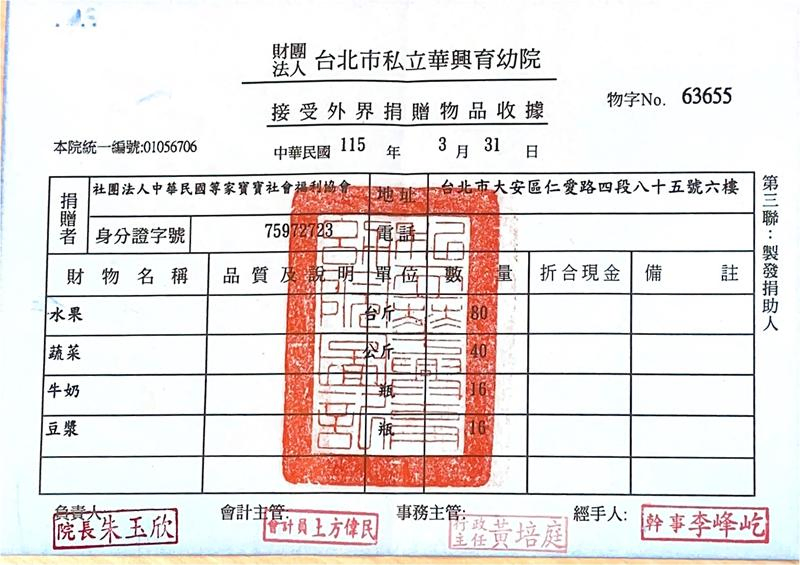 財團法人 台北市私立華興育幼院
接受外界捐贈物品收據
物字No. 63655
本院統一編號:01056706
中華民國 115 年 3 月 31 日
捐贈者 社團法人中華民國等家寶寶社會福利協會 地址 台北市大安區仁愛路四段八十五號六樓
身分證字號 75972723 電話
財物名稱 品質及說明 單位 數量 折合現金 備註
水果 台斤 80
蔬菜 公斤 40
牛奶 瓶 16
豆漿 瓶 16
第三聯：製發捐助人
負責人: 會計主管: 事務主管: 經手人:
院長朱玉欣 會計員上方偉民 行政主任黃培庭 幹事李峰屹